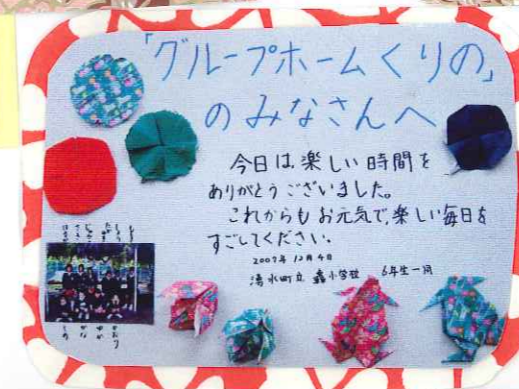 「グループホームくりの」
のみなさんへ
今日は、楽しい時間を
ありがとうございました。
これからもお元気で、楽しい毎日を
すごしてください。
2007年12月4日
清水町立 小学校 6年生一同